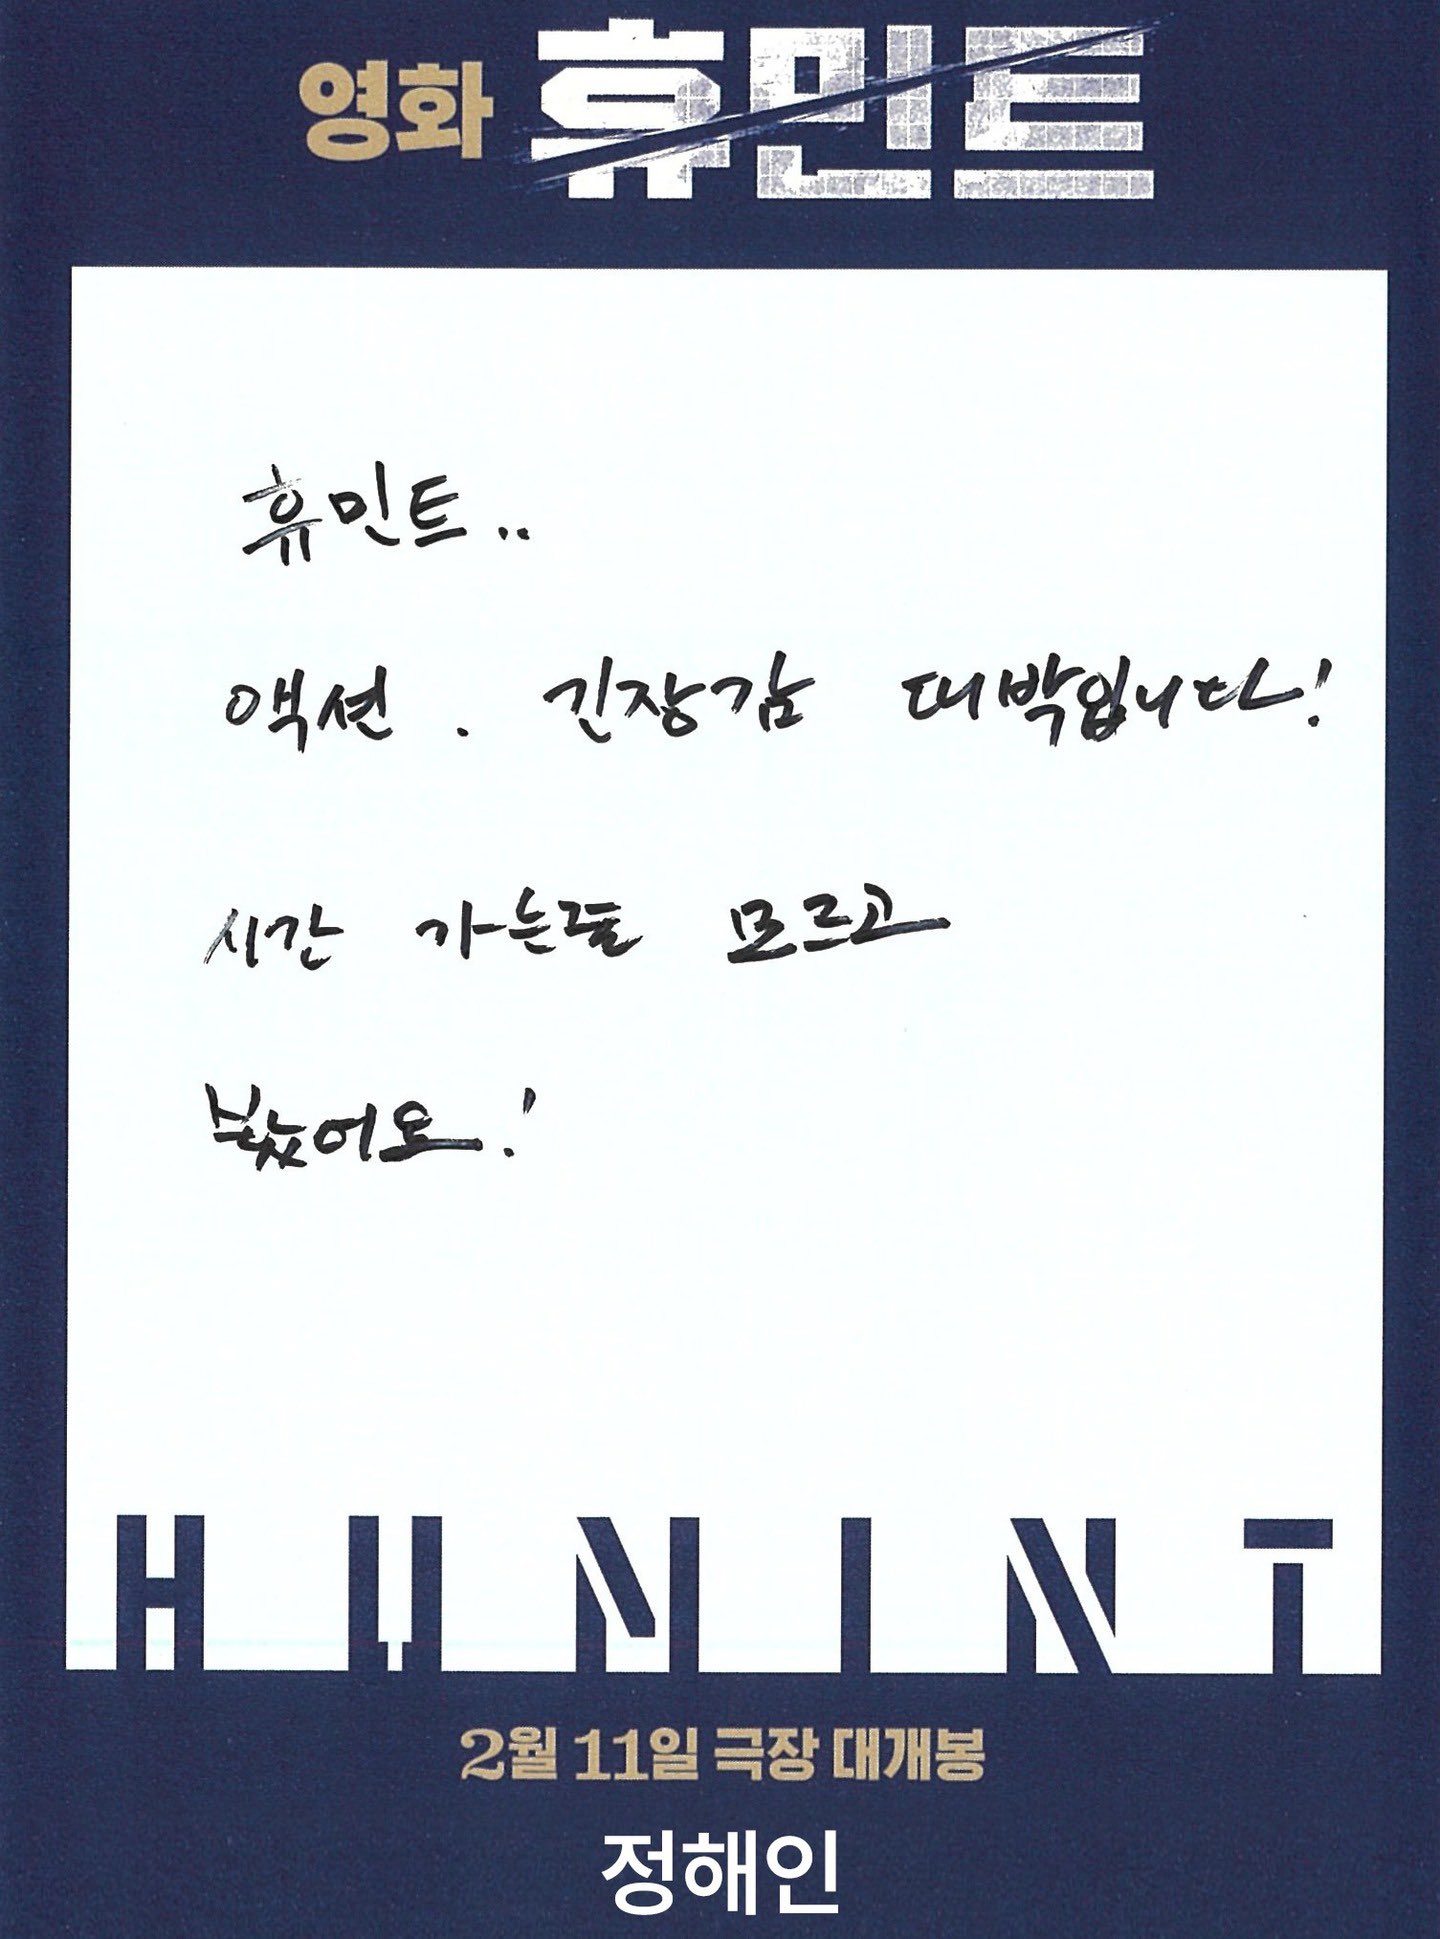 영화 휴민트
휴민트..
액션. 긴장감 대박입니다!
시간 가는줄 모르고
봤어요!
HUMINT
2월 11일 극장 대개봉
정해인